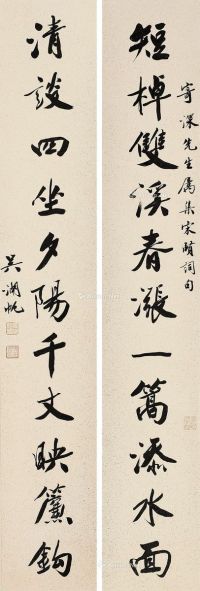 短棹雙溪春漲一篙添水面
寄深先生屬集宋賢詞句
清談四坐夕陽千丈映簾鉤
吳湖帆